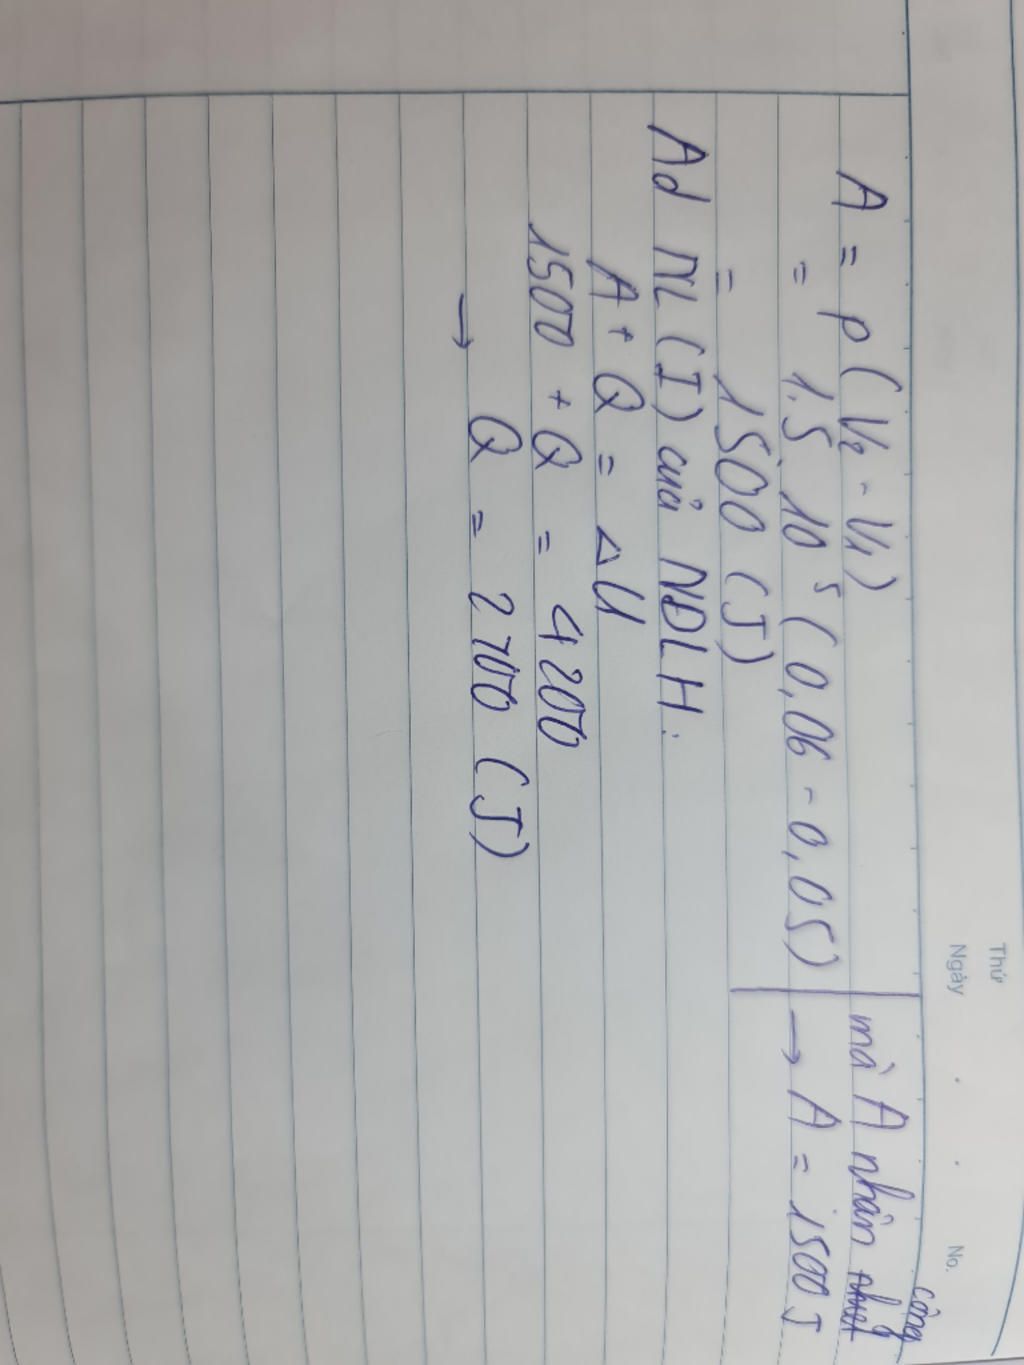 Thứ
Ngày
No.
A = p (V₂ - V₁)
= 1,5 . 10⁵ ( 0,06 - 0,05)
= 1500 (J)
mà A nhận nhiệt công
→ A = 1500 J
Ad NL (I) của NĐLH:
A + Q = ΔU
1500 + Q = 4200
→ Q = 2700 (J)